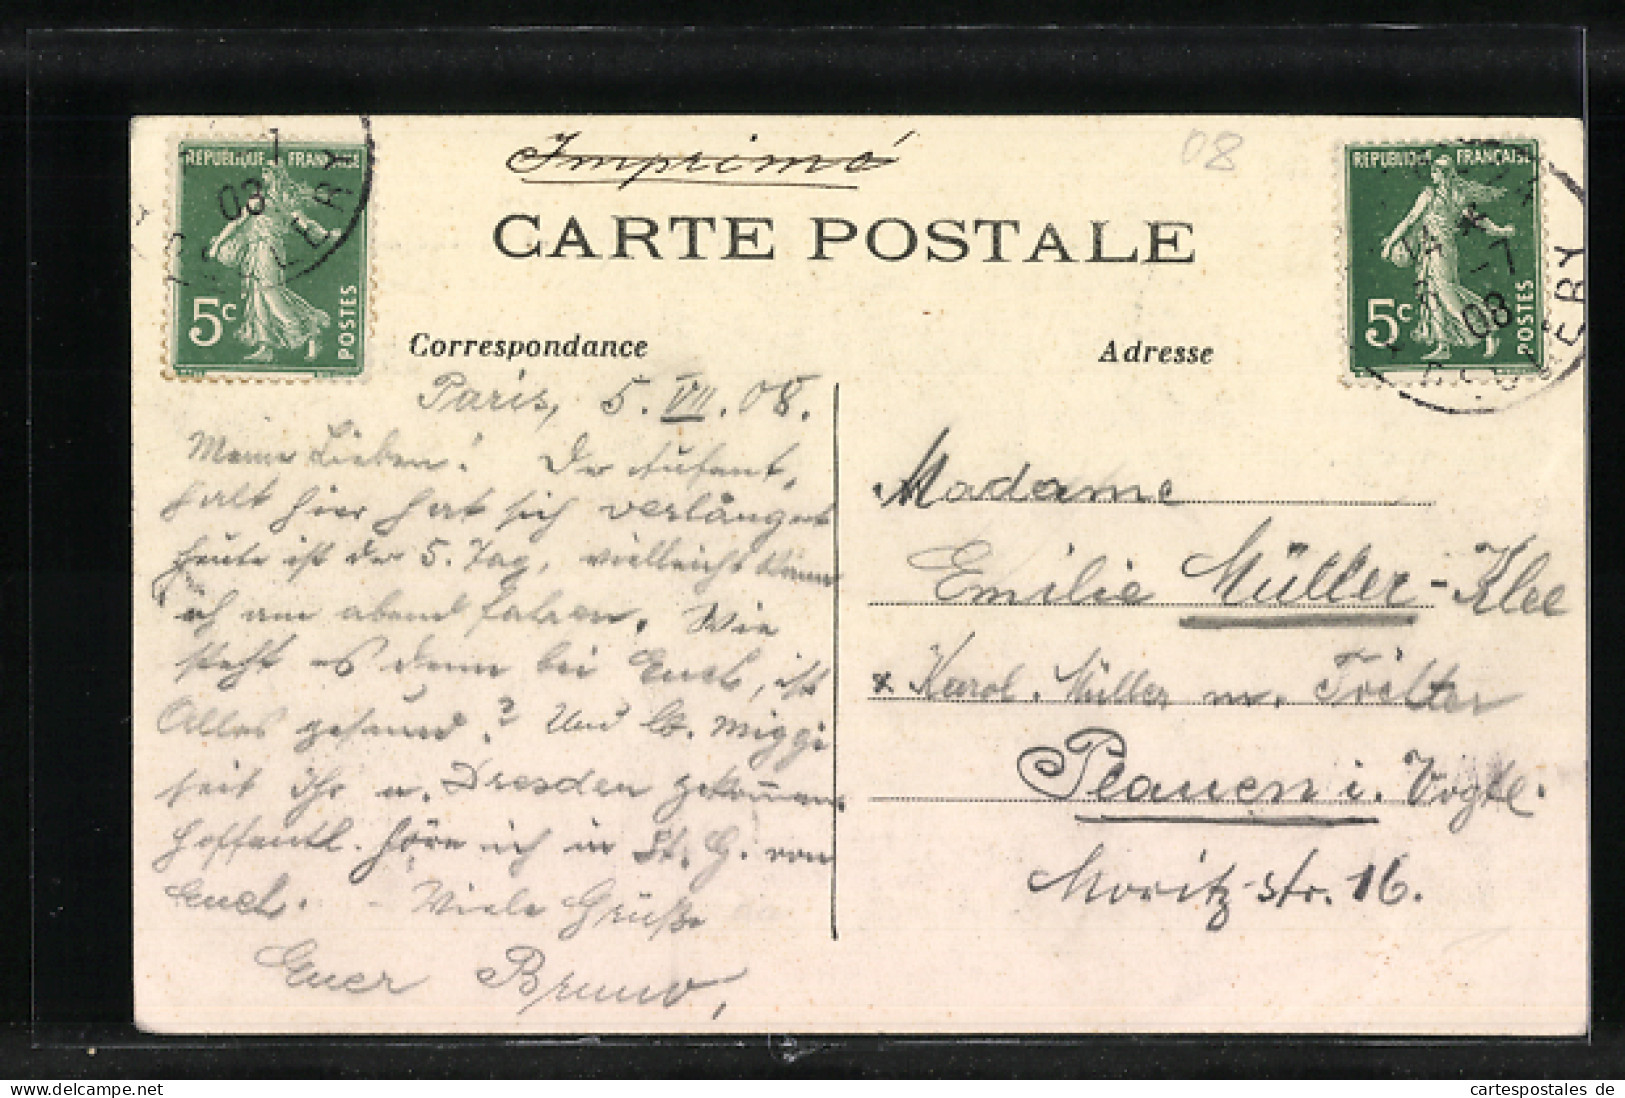 Imprimé
08
CARTE POSTALE
REPUBLIQUE FRANÇAISE
5c
POSTES
REPUBLIQUE FRANÇAISE
5c
POSTES
08
14
-7
08
Correspondance
Adresse
Paris, 5. VII. 08.
Meine Lieben! Der Aufent,
halt hier hat sich verlängert
heute ist der 5. Tag, vielleicht kann
ich am abend fahren. Wie
steht es denn bei Euch, ist
Alles gesund? Und lb. Miggi
seit ihr v. Dresden gekommen
hoffentl. höre ich in St. G. von
Euch. - Viele Grüße
Euer Bruno,
Madame
Emilie Müller-Klee
x Karol. Müller m.
Plauen i. Vogtl.
Moritz-str. 16.
Server-Nr. 163
cartespostales de